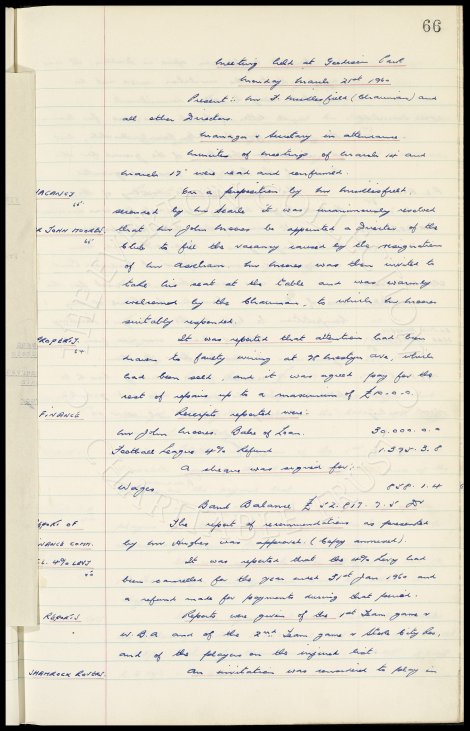 66
Meeting held at Goodison Park
Monday March 21st 1960
Present :- Mr F. Micklesfield (Chairman) and
all other Directors.
Manager & Secretary in attendance.
Minutes of meetings of March 14 and
March 17 were read and confirmed.
VACANCY
On a proposition by Mr Micklesfield,
seconded by Mr Searle it was unanimously resolved
JOHN MOORES
that Mr John Moores be appointed a Director of the
Club to fill the vacancy caused by the resignation
of Mr . Mr Moores was then invited to
take his seat at the table and was warmly
welcomed by the Chairman, to which Mr Moores
suitably responded.
PROPERTY.
It was reported that attention had been
drawn to faulty wiring at 98 Ave, which
had been sold, and it was agreed pay for the
cost of repairs up to a maximum of £10.0.0.
FINANCE
Receipts reported were:
Mr John Moores. Balce of Loan. 30.000.0.0
Football League 4% Refund 1.375.3.8
A cheque was signed for:-
Wages 858.1.4
Bank Balance £52.817.7.5
REPORT OF
The report of recommendations as presented
FINANCE COMM.
by Mr Hughes was approved. (Copy annexed).
F.L. 4% LEVY
It was reported that the 4% Levy had
been cancelled for the year ended 31st Jan 1960 and
a refund made for payments during that period.
REPORTS
Reports were given of the 1st Team game v
W.B.A and of the 2nd Team game v Stoke City Res,
and of the players on the injured list.
SHAMROCK ROVERS
An invitation was received to play in